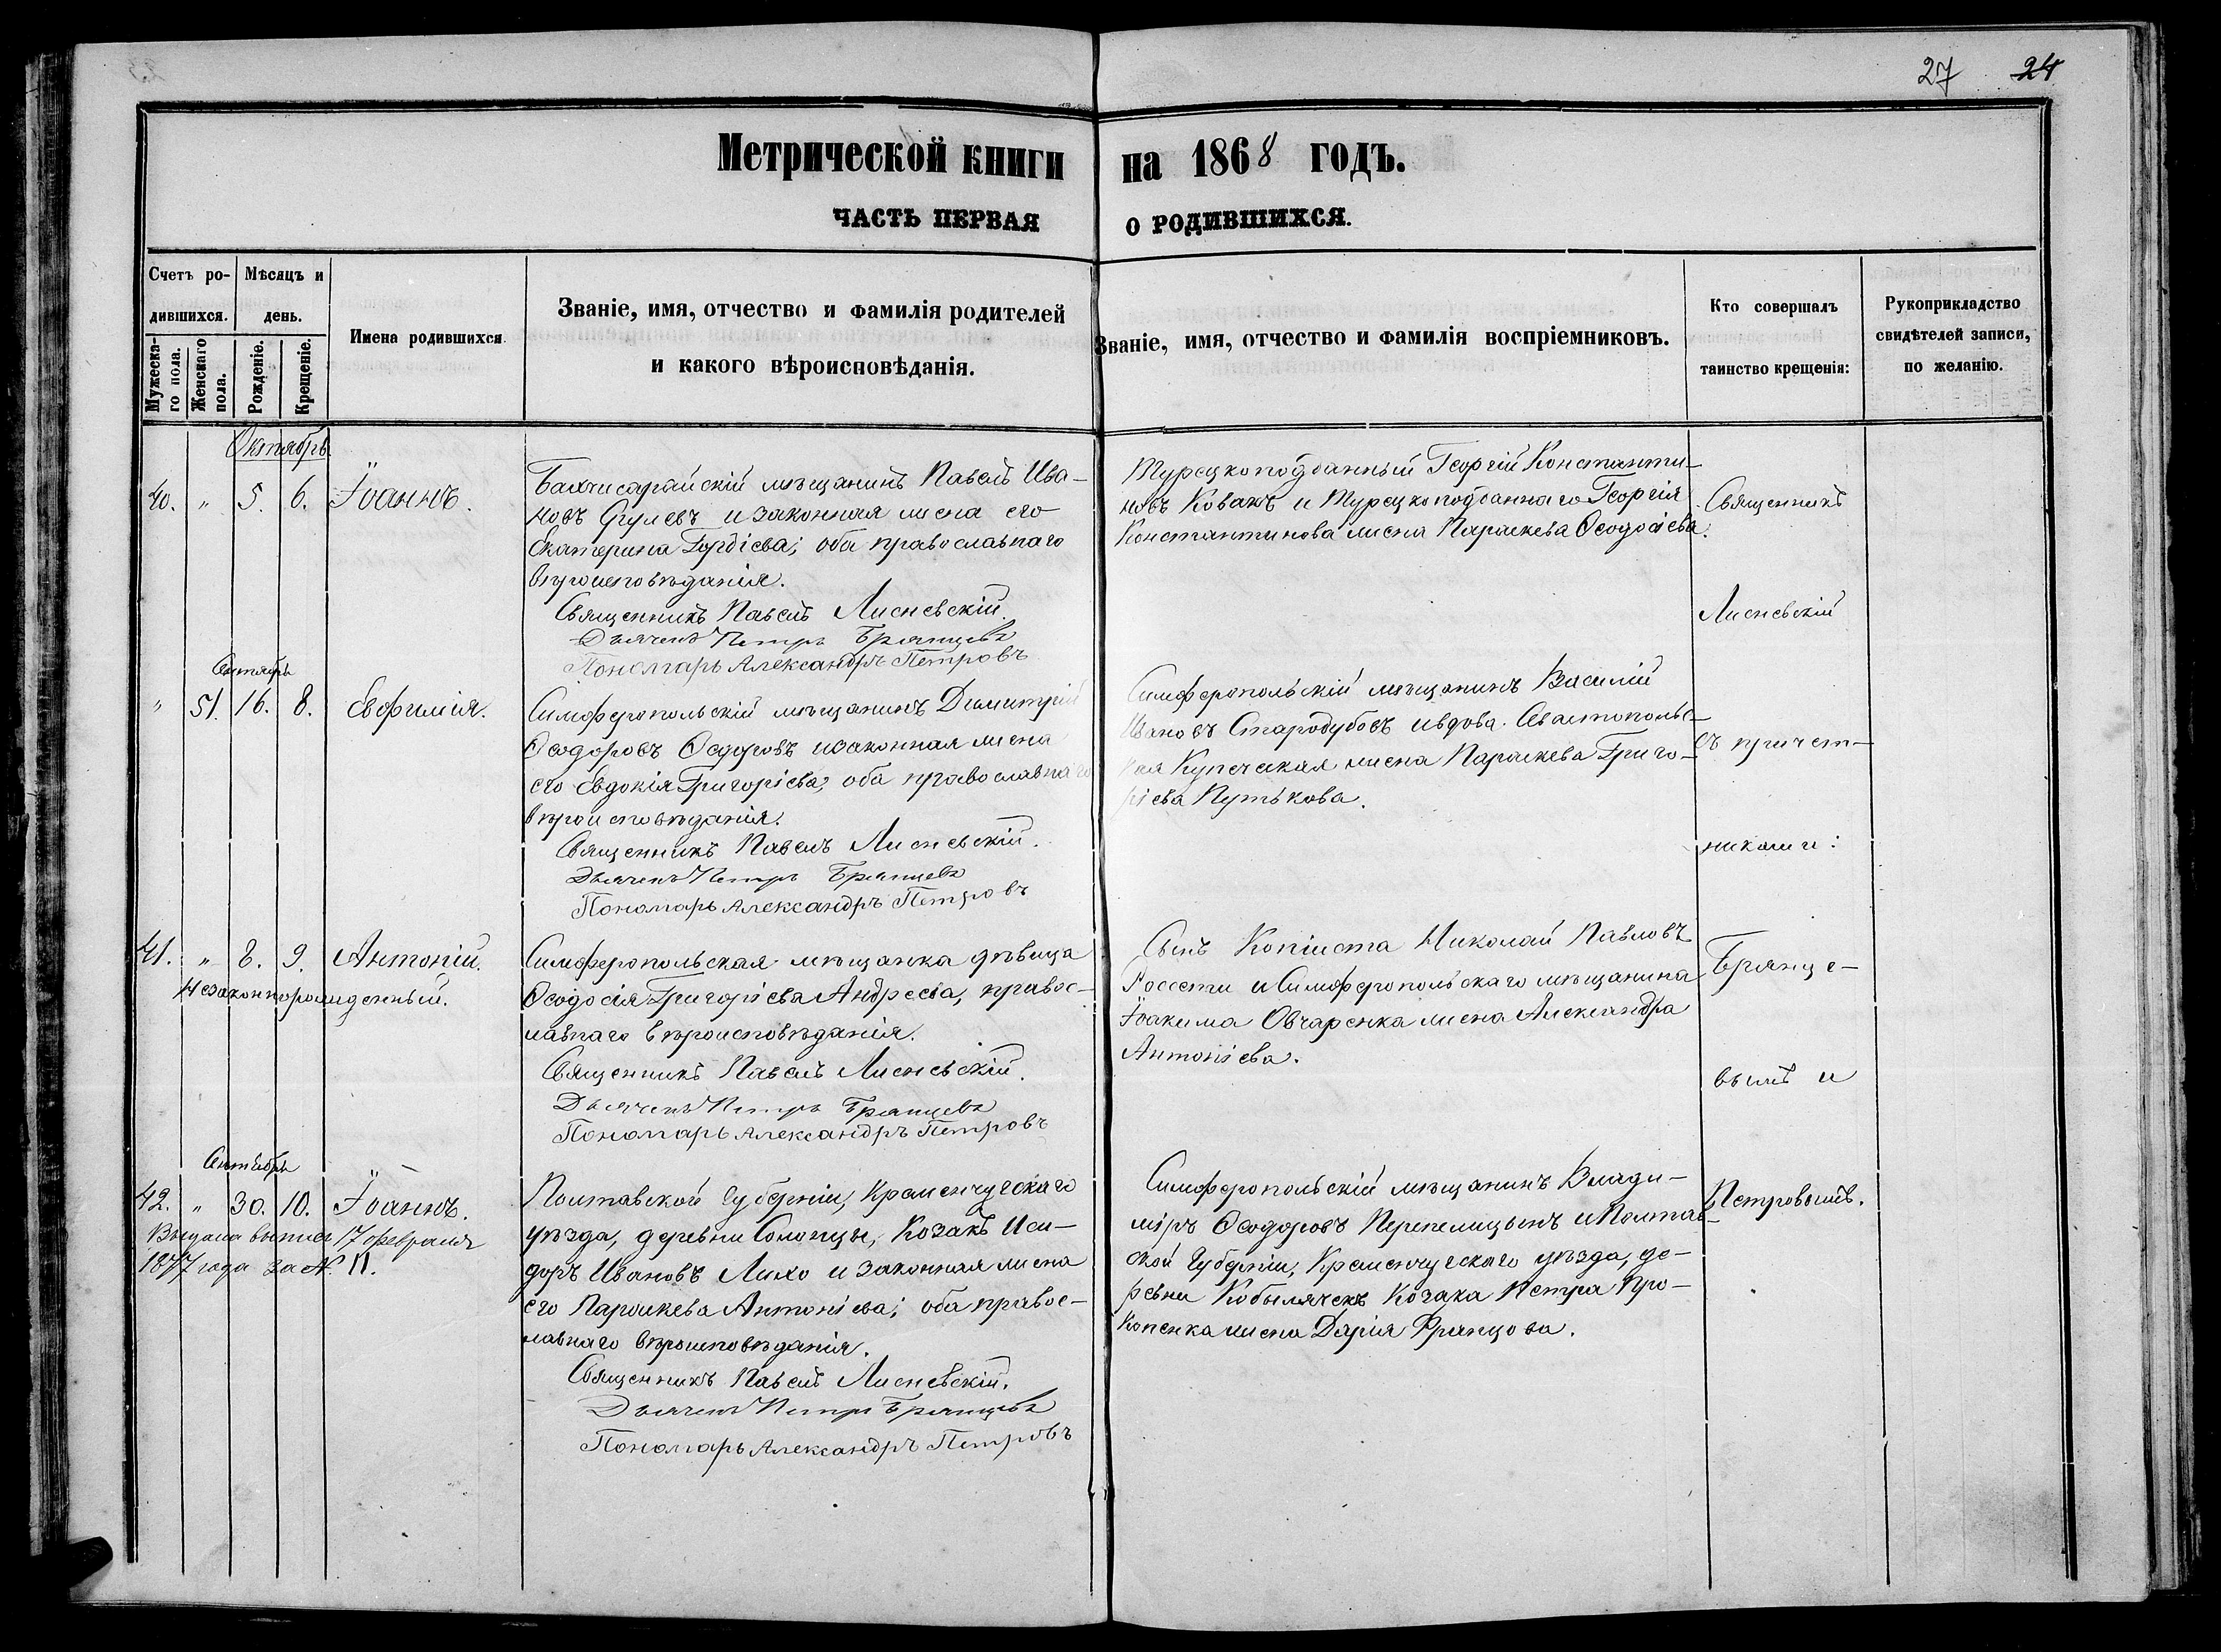 27 24
Метрической книги на 1868 годъ.
ЧАСТЬ ПЕРВАЯ О РОДИВШИХСЯ.
Счетъ ро-
дившихся.
Мужеска-
го пола.
Женскаго
пола.
Мѣсяцъ и
день.
Рожденіе.
Крещеніе.
Имена родившихся.
Званіе, имя, отчество и фамилія родителей
и какого вѣроисповѣданія.
Званіе, имя, отчество и фамилія воспріемниковъ.
Кто совершалъ
таинство крещенія:
Рукоприкладство
свидѣтелей записи,
по желанію.
Октябрь
40. „ 5. 6. Іоаннъ.
Бахчисарайскій мѣщанинъ Павелъ Ива-
новъ и законная жена его
Екатерина Гордіева; оба православнаго
вѣроисповѣданія.
Священникъ Павелъ Лисневскій.
Дьячекъ Петръ Брянцевъ
Пономарь Александръ Петровъ
Турецкоподданный Георгій Константи-
новъ Ковакъ и Турецкоподданнаго Георгія
Константинова жена Параскева Ѳеодосіева.
Сентябрь
„ 51. 16. 8. Евфимія.
Симферопольскій мѣщанинъ Димитрій
Ѳеодоровъ Ѳедоровъ и законная жена
его Евдокія Григоріева, оба православнаго
вѣроисповѣданія.
Священникъ Павелъ Лисневскій.
Дьячекъ Петръ Брянцевъ
Пономарь Александръ Петровъ
Симферопольскій мѣщанинъ Василій
Ивановъ Стародубовъ и вдова Севастопольс-
кая Купеческая жена Параскева Григо-
ріева Путькова.
41. „ 8. 9. Антоній.
Незаконнорожденный.
Симферопольская мѣщанка дѣвица
Ѳеодосія Григоріева Андреева, правос-
лавнаго вѣроисповѣданія.
Священникъ Павелъ Лисневскій.
Дьячекъ Петръ Брянцевъ
Пономарь Александръ Петровъ
Сынъ Копіиста Николай Павловъ
Россети и Симферопольскаго мѣщанина
Іоакима Овчаренка жена Александра
Антоніева.
Сентябрь
42. „ 30. 10. Іоаннъ.
Выдана выпись 17 февраля
1877 года за № 11.
Полтавской Губерніи, Кременчугскаго
уѣзда, деревни Солонцы, Козакъ Иси-
доръ Ивановъ Лихо и законная жена
его Параскева Антоніева; оба правос-
лавнаго вѣроисповѣданія.
Священникъ Павелъ Лисневскій.
Дьячекъ Петръ Брянцевъ
Пономарь Александръ Петровъ
Симферопольскій мѣщанинъ Влади-
міръ Ѳеодоровъ Перепелицынъ и Полтав-
ской Губерніи, Кременчугскаго уѣзда, де-
ревни Кобылячекъ Козака Петра Про-
копенка жена Дарія Францова.
Священникъ
Лисневскій
съ причет-
никами:
Брянце-
вымъ и
Петровымъ.